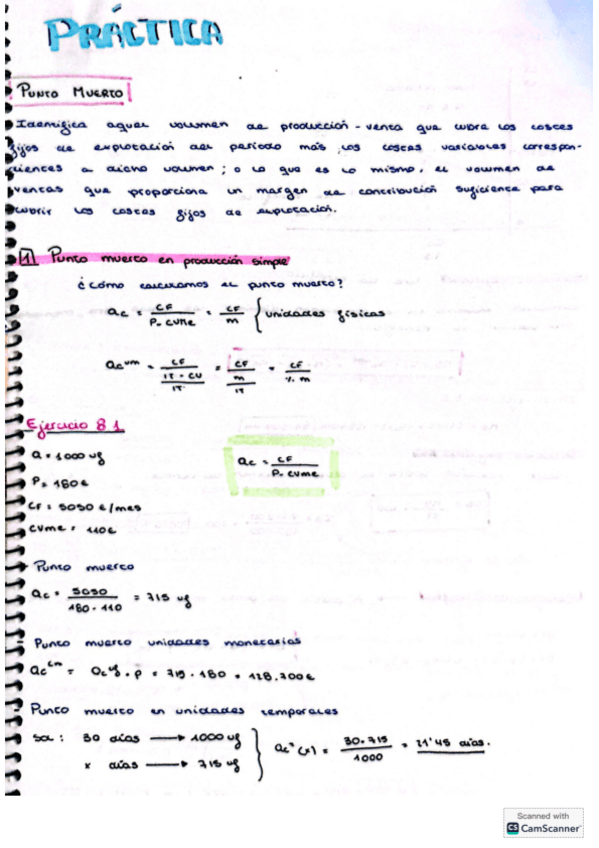 PRÁCTICA
PUNTO MUERTO
Identifica aquel volumen de producción-venta que cubre los costes
fijos de explotación del período más los costes variables correspon-
dientes a dicho volumen; o lo que es lo mismo, el volumen de
ventas que proporciona un margen de contribución suficiente para
cubrir los costes fijos de explotación.
1 Punto muerto en producción simple
¿Cómo calculamos el punto muerto?
ac = CF / P - cvme = CF / m { unidades físicas
ac um = CF / (IT - CV / IT) = CF / (m / IT) = CF / % m
Ejercicio 8.1
a = 1000 uf
ac = CF / P - cvme
P = 180€
CF = 5050 €/mes
cvme = 110€
- Punto muerto
ac = 5050 / 180 - 110 = 715 uf
- Punto muerto unidades monetarias
ac = ac uf · P = 715 · 180 = 128.700€
- Punto muerto en unidades temporales
30 días → 1000 uf
x días → 715 uf
(x) = 30 · 715 / 1000 = 21'45 días.
Scanned with
CS CamScanner